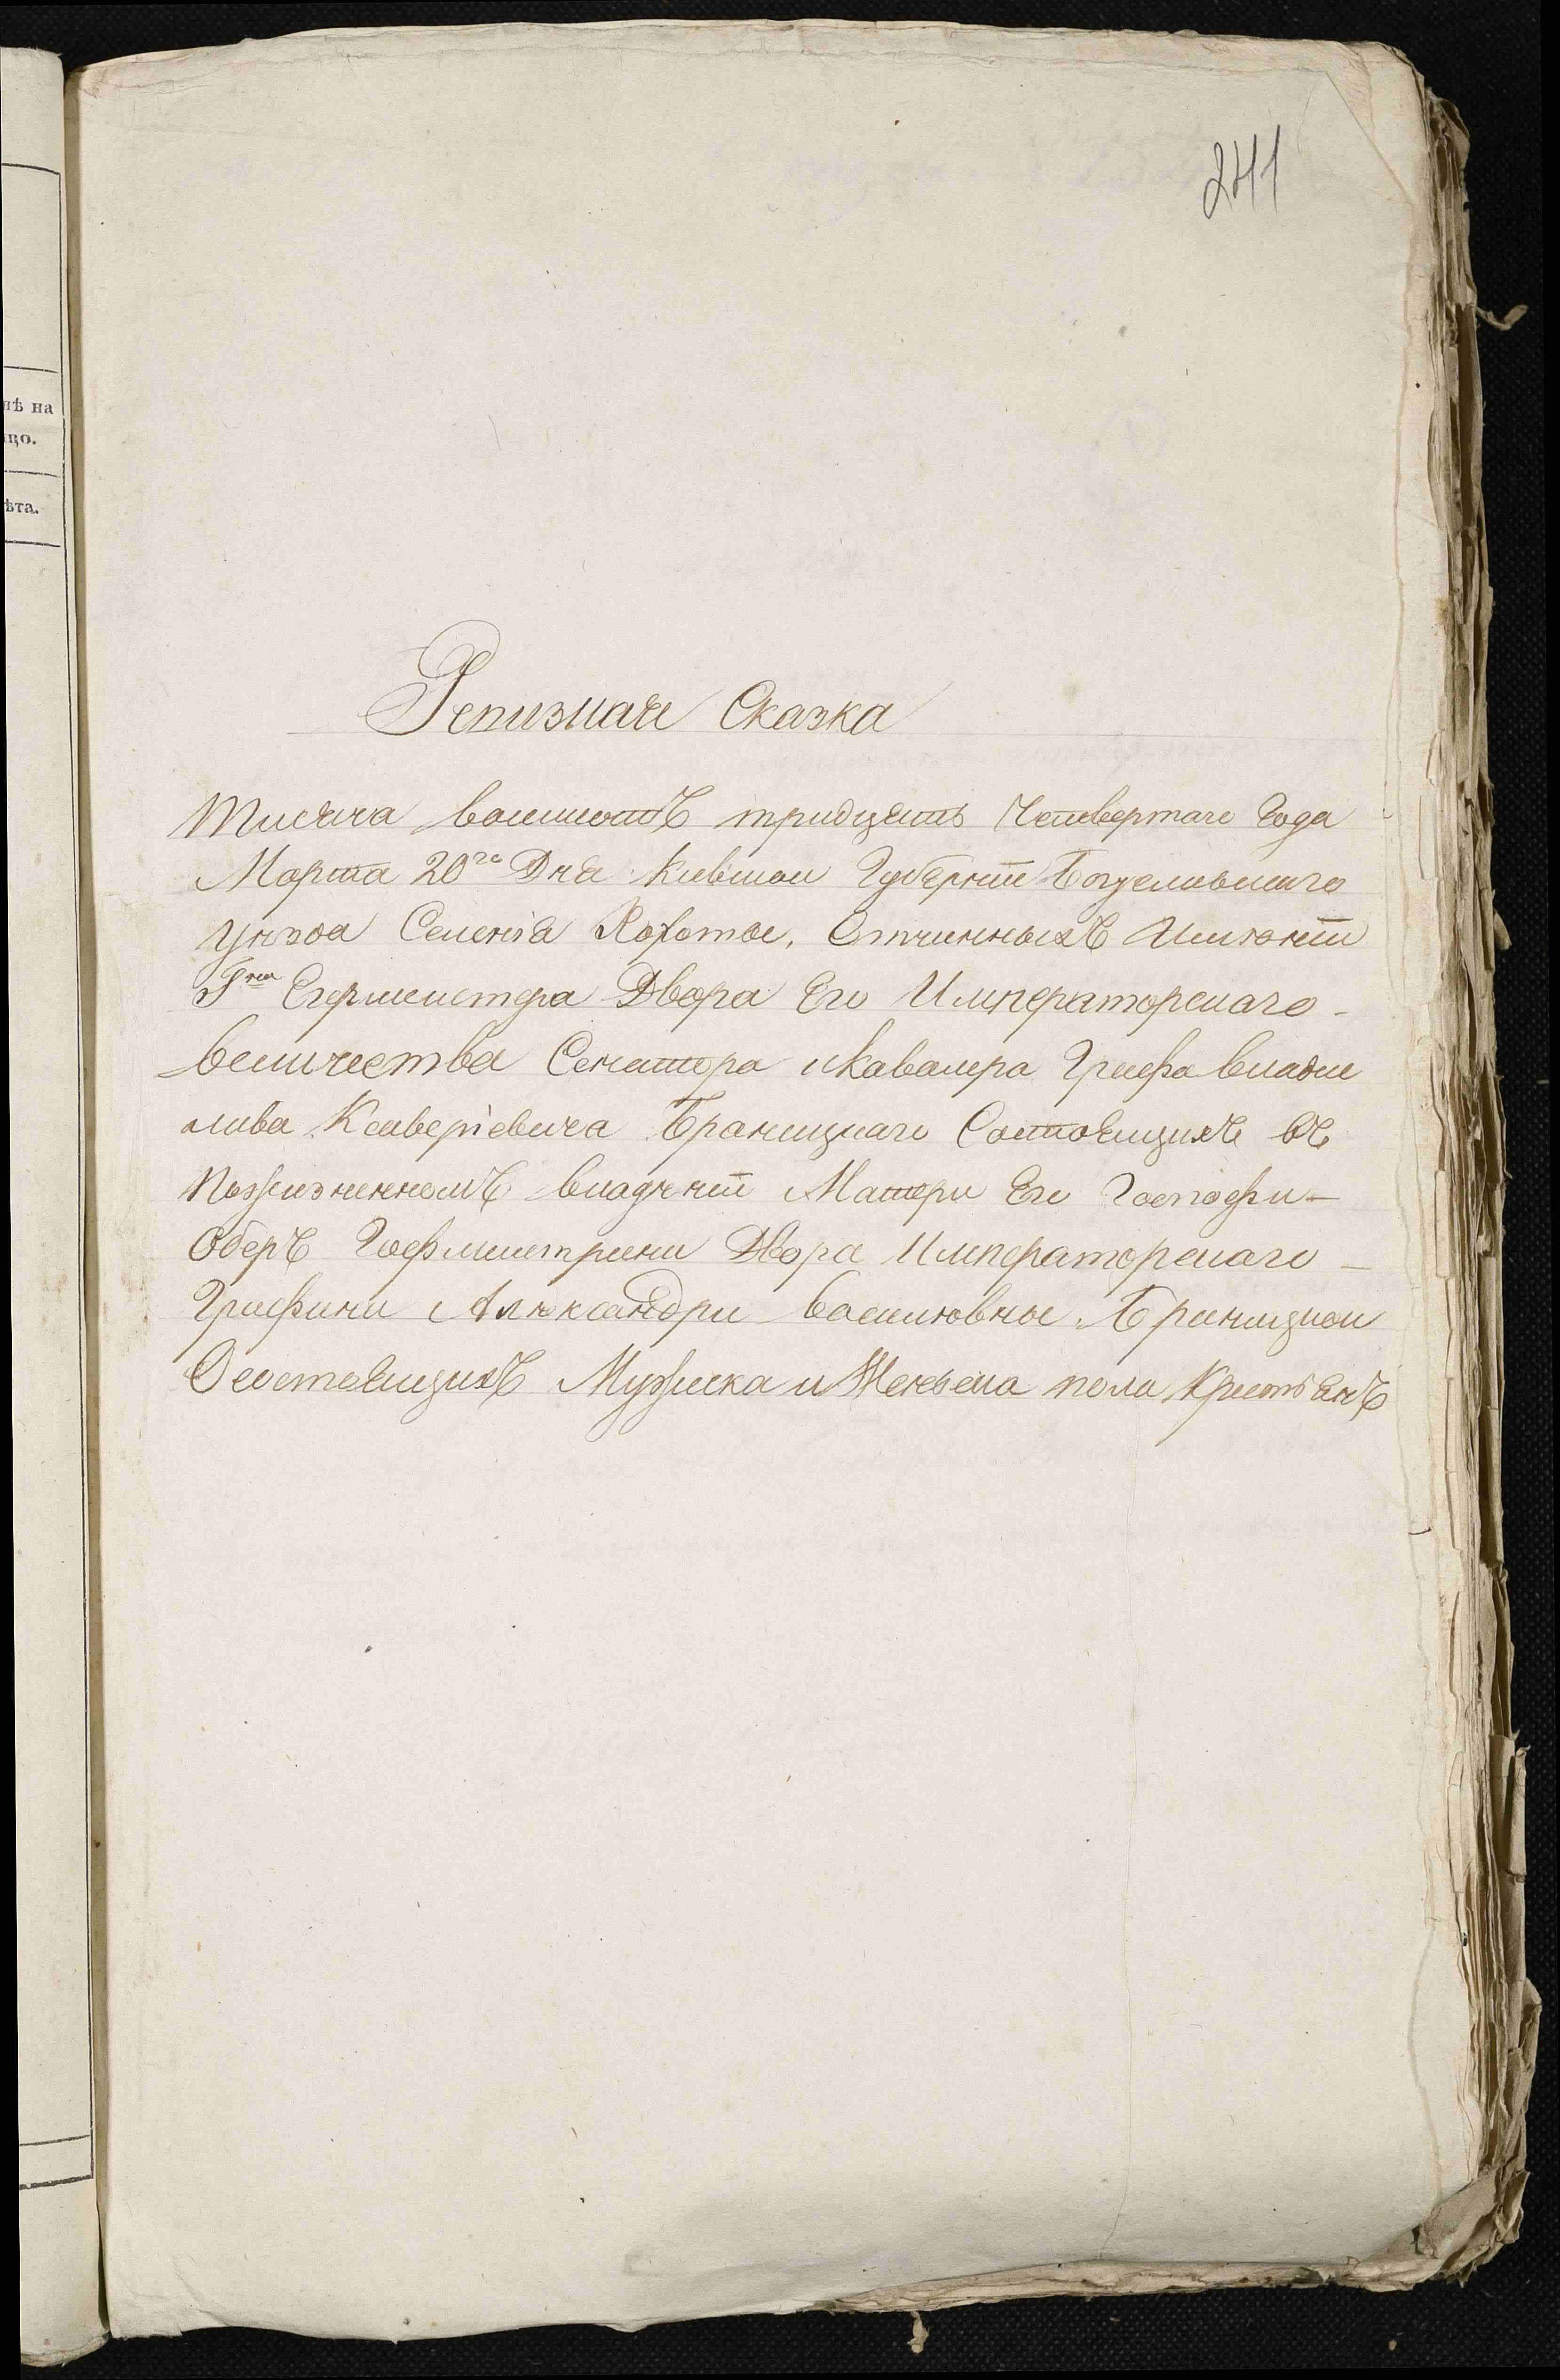 нѣ на
цо.
ѣта.
241
Ревизная Сказка
Тисяча восимсотъ тридцять Четвертаго Года
Марта 20го Дня Кивской Губернїи Богуславскаго
Уезда Селенїя Отчинныхъ Имѣнїи
Гна Егермейстера Двора Его Императорскаго -
Величества Сенатора и Кавалера Графа Влади
слава Ксаверїевича Браницкаго Состоящихъ въ
Пожизненномъ владѣнїи Матери Его Госпожи -
Оберъ Гофмистрини Двора Императорскаго -
Графини Александри Васильовной Браницкой
О состоящихъ Мужеска и Женьска пола Крестьянъ